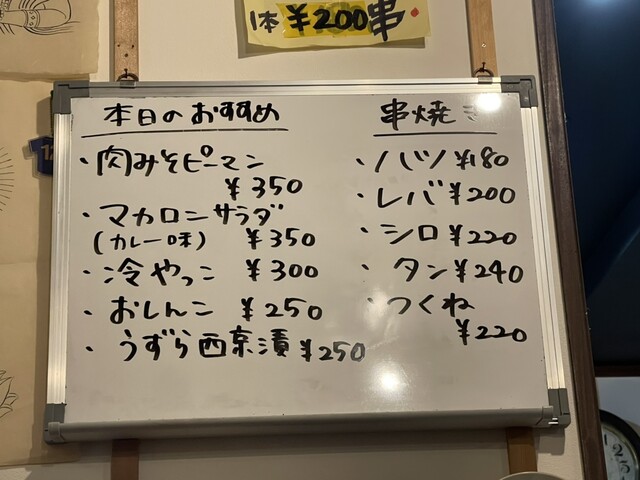 1本¥200串
本日のおすすめ
・肉みそピーマン
¥350
・マカロニサラダ
(カレー味) ¥350
・冷やっこ ¥300
・おしんこ ¥250
・うずら西京漬 ¥250
串焼き
・ハツ ¥180
・レバ ¥200
・シロ ¥220
・タン ¥240
・つくね
¥220